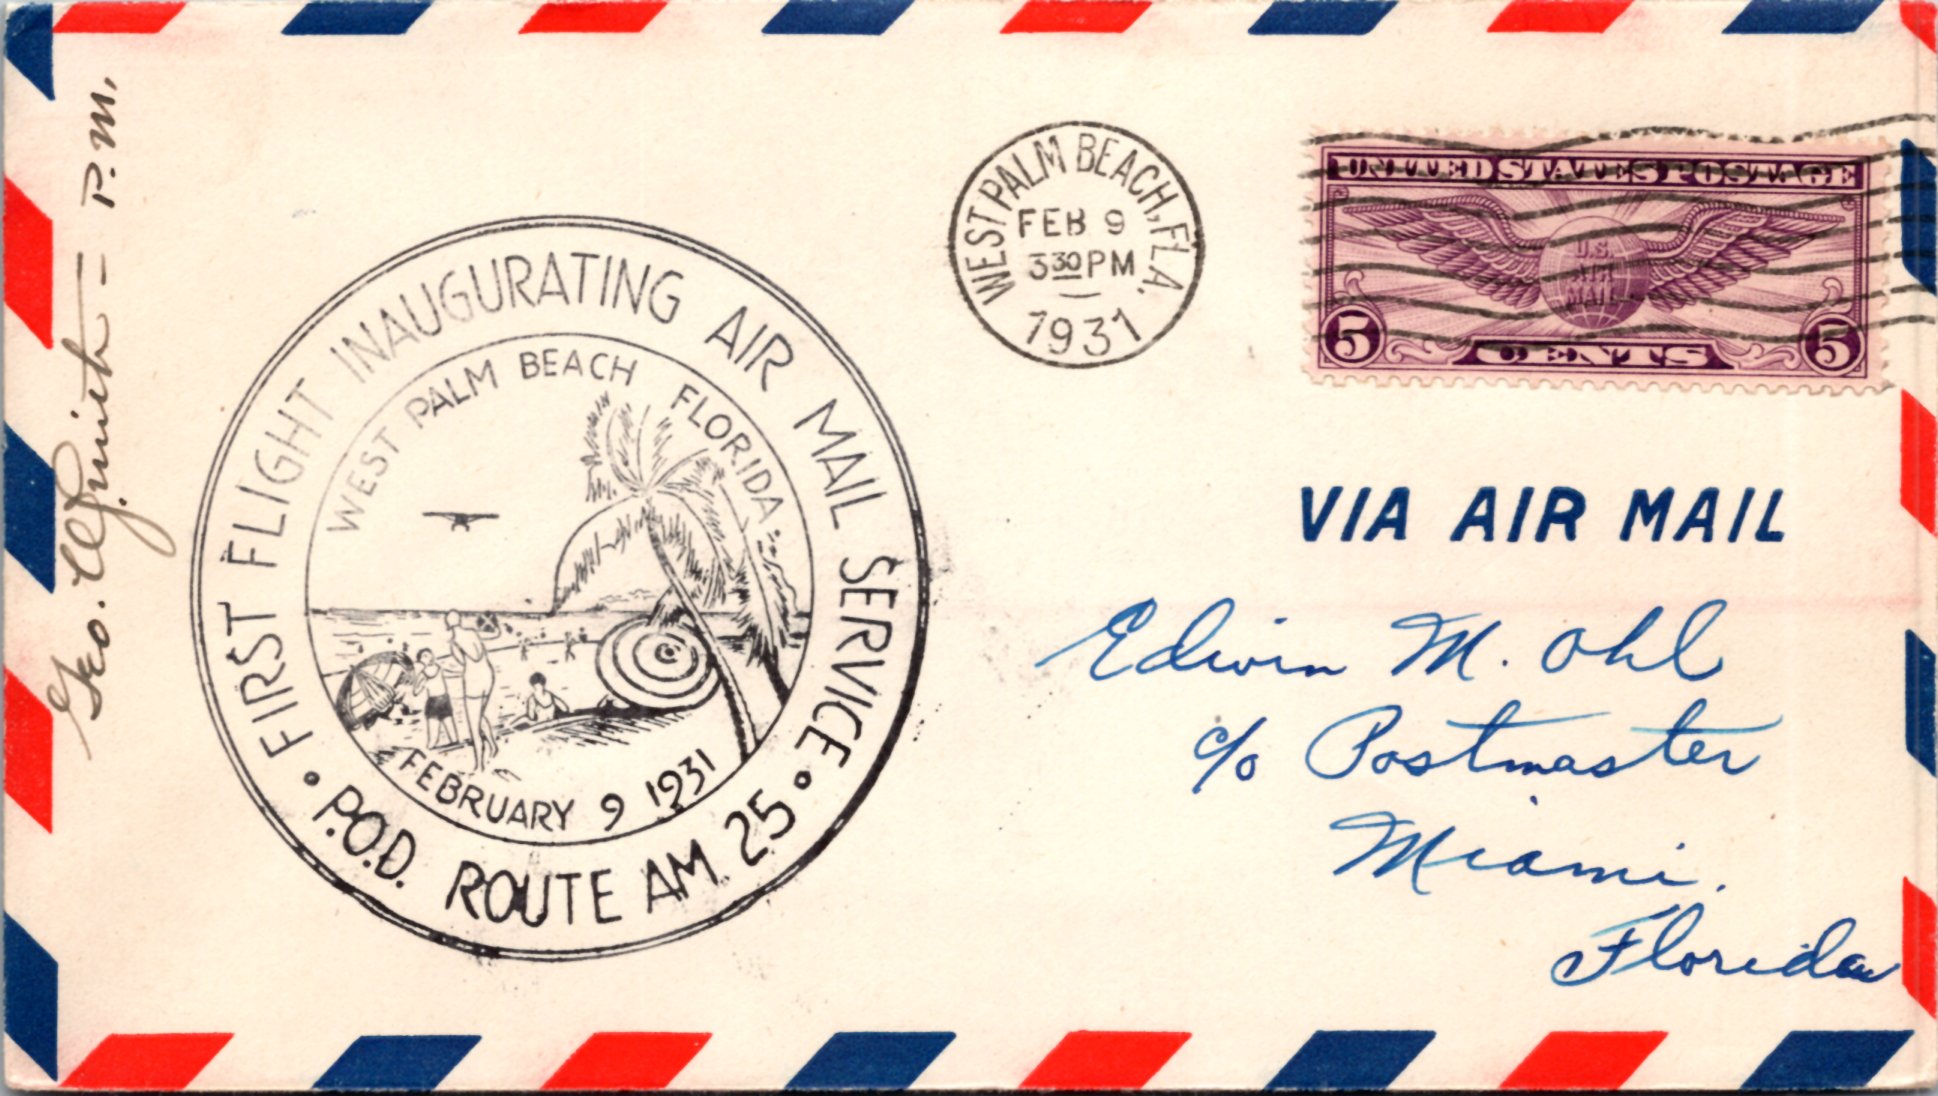 Geo. W. Smith - P.M.
FIRST FLIGHT INAUGURATING AIR MAIL SERVICE
WEST PALM BEACH FLORIDA.
FEBRUARY 9 1931
• P.O.D. ROUTE A.M. 25 •
WEST PALM BEACH, FLA.
FEB 9
3 30 PM
1931
UNITED STATES POSTAGE
U.S.
AIR
MAIL
5 CENTS 5
VIA AIR MAIL
Edwin M. Ohl
c/o Postmaster
Miami.
Florida